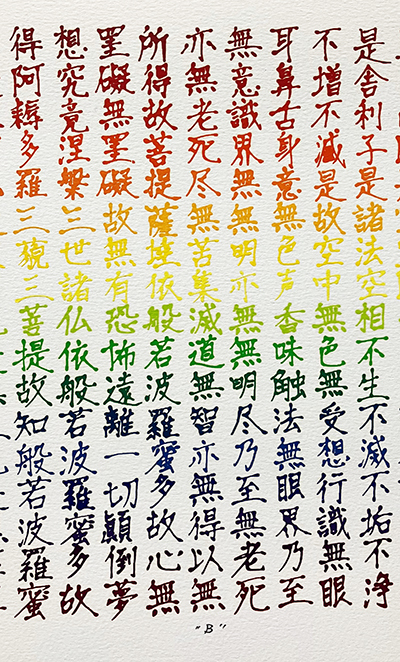 是舎利子是諸法空相不生不滅不垢不浄
不増不減是故空中無色無受想行識無眼
耳鼻舌身意無色声香味触法無眼界乃至
無意識界無無明亦無無明尽乃至無老死
亦無老死尽無苦集滅道無智亦無得以無
所得故菩提薩埵依般若波羅蜜多故心無
罣礙無罣礙故無有恐怖遠離一切顛倒夢
想究竟涅槃三世諸仏依般若波羅蜜多故
得阿耨多羅三藐三菩提故知般若波羅蜜
"B"